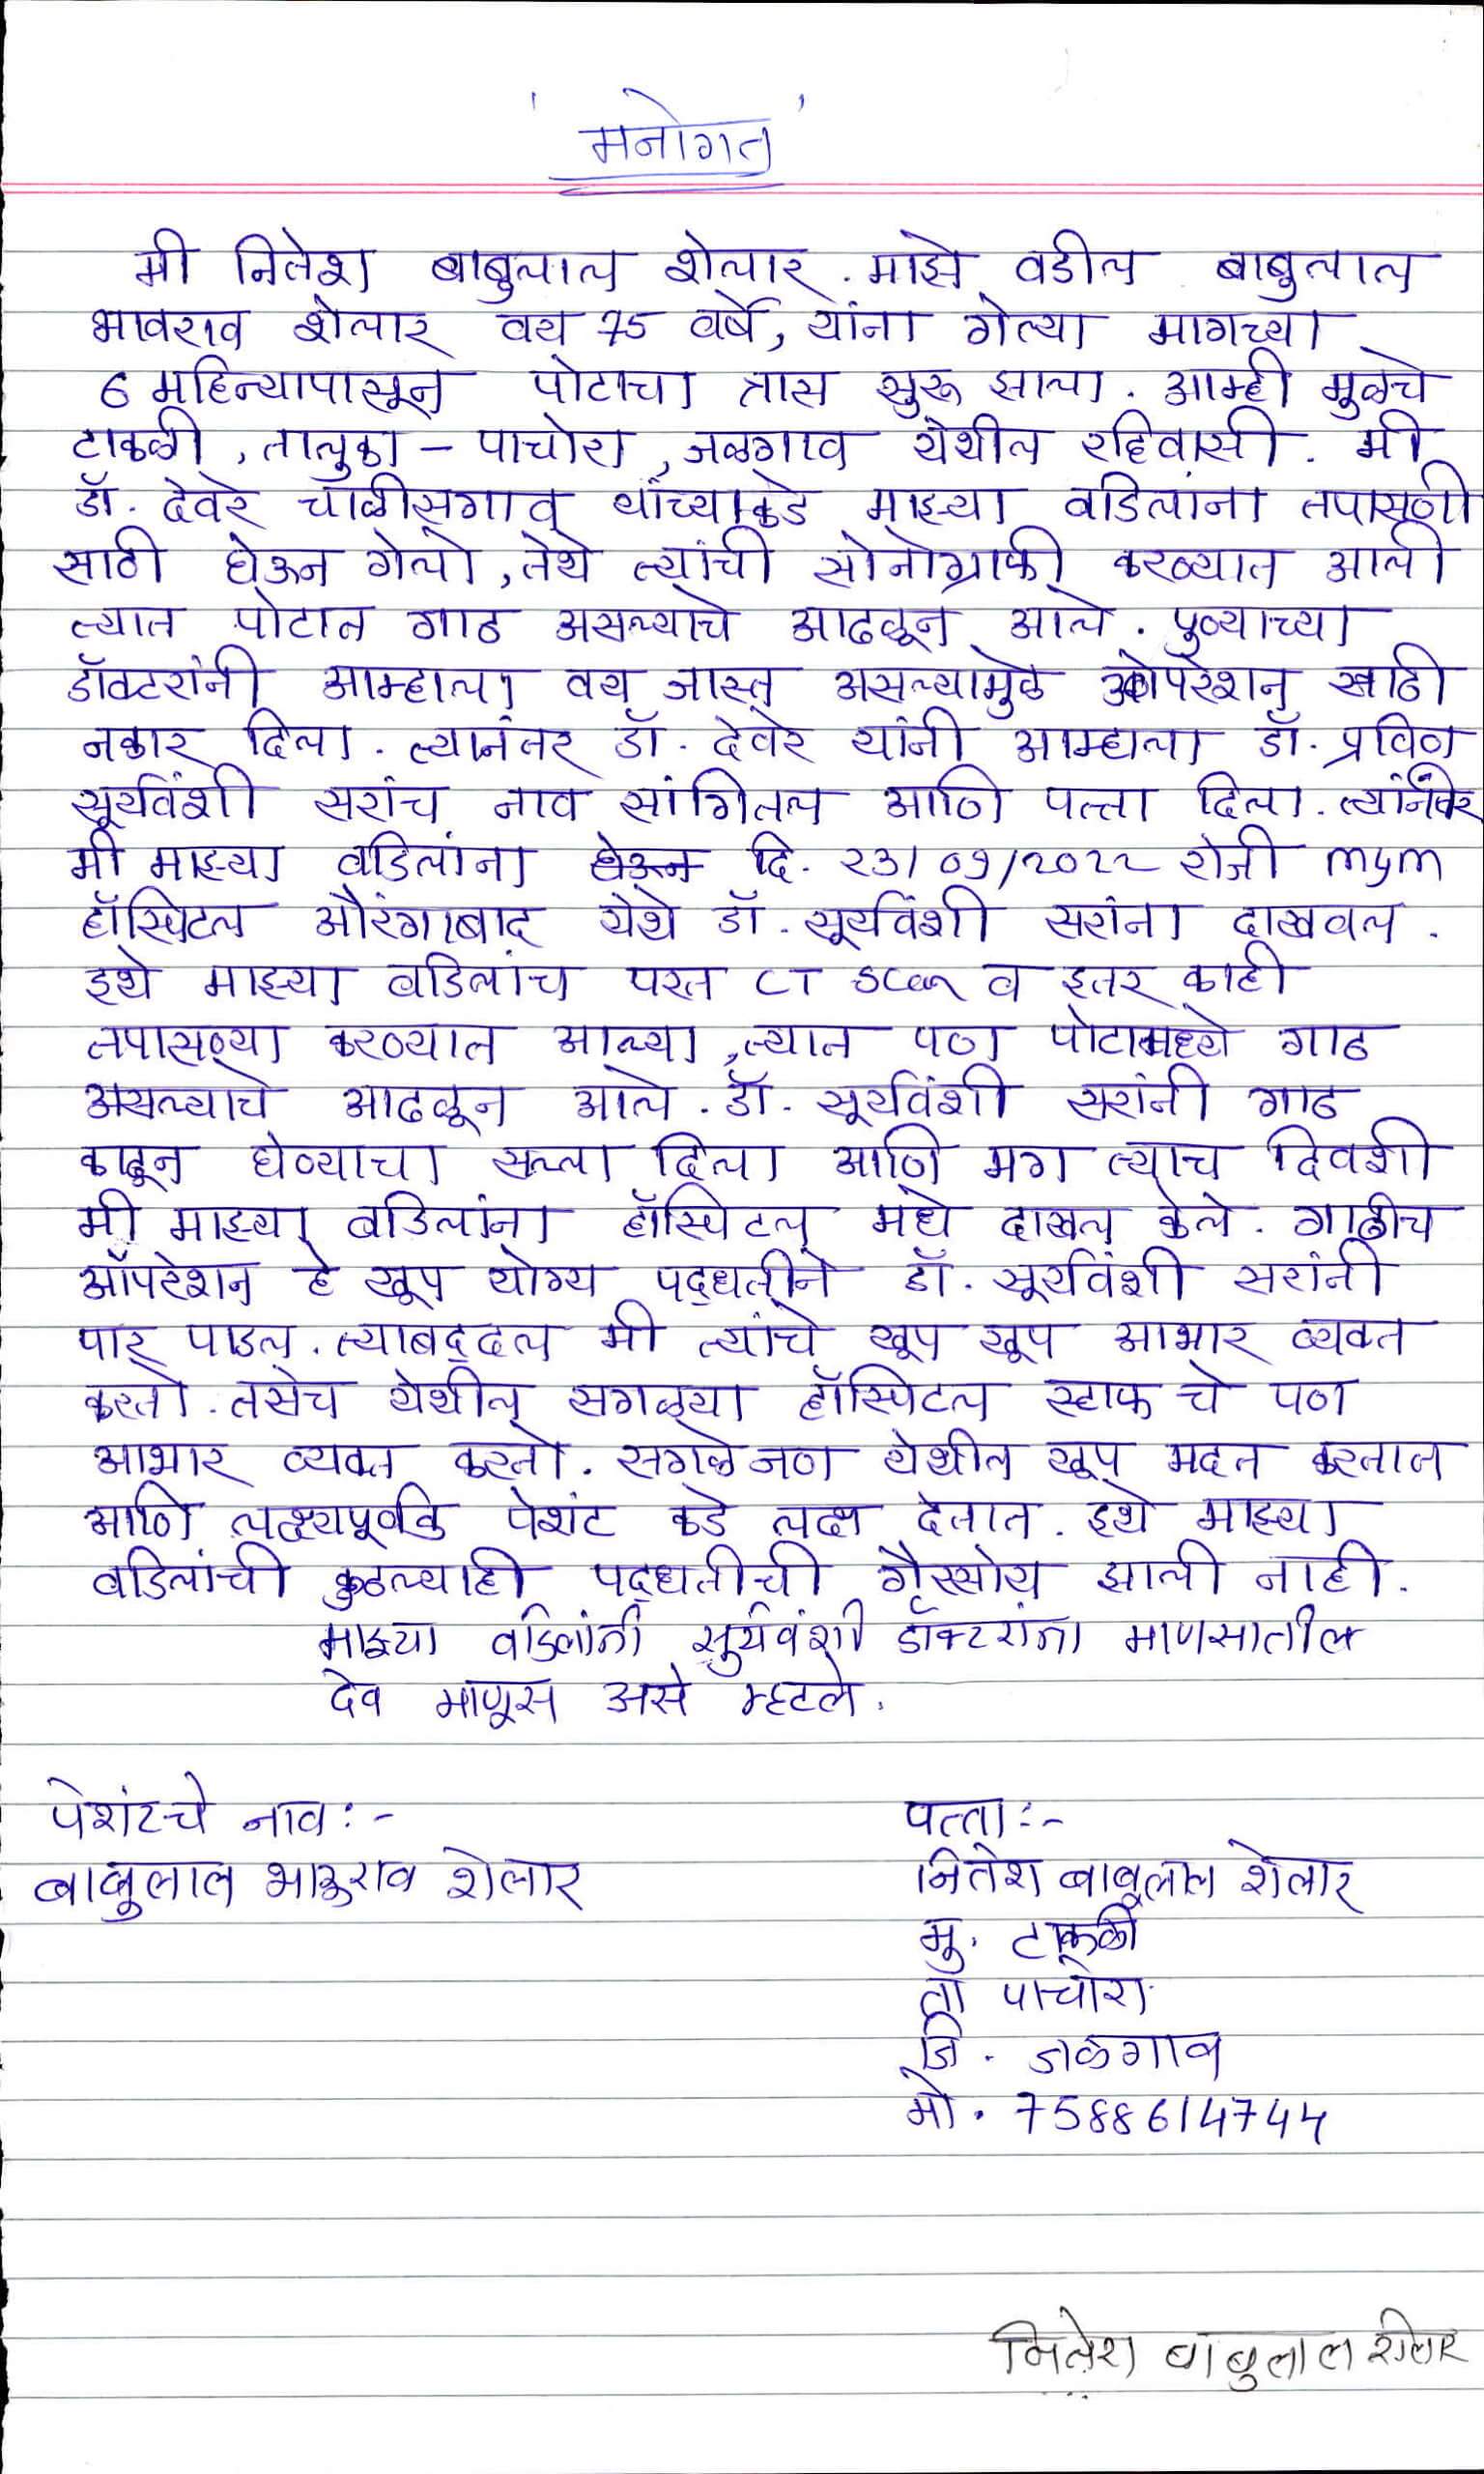 ' मनोगत '
मी नितेश बाबुलाल शेलार. माझे वडील बाबुलाल
भावराव शेलार वय 75 वर्षे, यांना गेल्या मागच्या
6 महिन्यापासून पोटाचा त्रास सुरू झाला. आम्ही मुळचे
टाकळी, तालुका - पाचोरा, जळगाव येथील रहिवासी. मी
डॉ. देवरे चाळीसगाव यांच्याकडे माझ्या वडिलांना तपासणी
साठी घेऊन गेलो, तेथे त्यांची सोनोग्राफी करण्यात आली
त्यात पोटात गाठ असल्याचे आढळून आले. पुण्याच्या
डॉक्टरांनी आम्हाला वय जास्त असल्यामुळे ऑपरेशन साठी
नकार दिला. त्यानंतर डॉ. देवरे यांनी आम्हाला डॉ. प्रविण
सूर्यवंशी सरांच नाव सांगितल आणि पत्ता दिला. त्यांनंतर
मी माझ्या वडिलांना घेऊन दि. २3/09/२0२२ रोजी mgm
हॉस्पिटल औरंगाबाद येथे डॉ. सूर्यवंशी सरांना दाखवल.
इथे माझ्या वडिलांच परत CT scan व इतर काही
तपासण्या करण्यात आल्या, त्यात पण पोटामध्ये गाठ
असल्याचे आढळून आले. डॉ. सूर्यवंशी सरांनी गाठ
काढून घेण्याचा सल्ला दिला आणि मग त्याच दिवशी
मी माझ्या वडिलांना हॉस्पिटल मधे दाखल केले. गाठीच
ऑपरेशन हे खूप योग्य पद्धतीने डॉ. सूर्यवंशी सरांनी
पार पाडल. त्याबद्दल मी त्यांचे खूप खूप आभार व्यक्त
करतो. तसेच येथील सगळ्या हॉस्पिटल स्टाफ चे पण
आभार व्यक्त करतो. सगळेजण येथील खूप मदत करतात
आणि लक्ष्यपूर्वक पेशंट कडे लक्ष देतात. इथे माझ्या
वडिलांची कुठल्याही पद्धतीची गैरसोय झाली नाही.
माझ्या वडिलांनी सुर्यवंशी डॉक्टरांना माणसातील
देव माणूस असे म्हटले.
पेशंटचे नाव :-
बाबुलाल भाऊराव शेलार
पत्ता :-
नितेश बाबुलाल शेलार
मु. टाकळी
ता पाचोरा
जि. जळगाव
मो. 7588614744
नितेश बाबुलाल शेलार